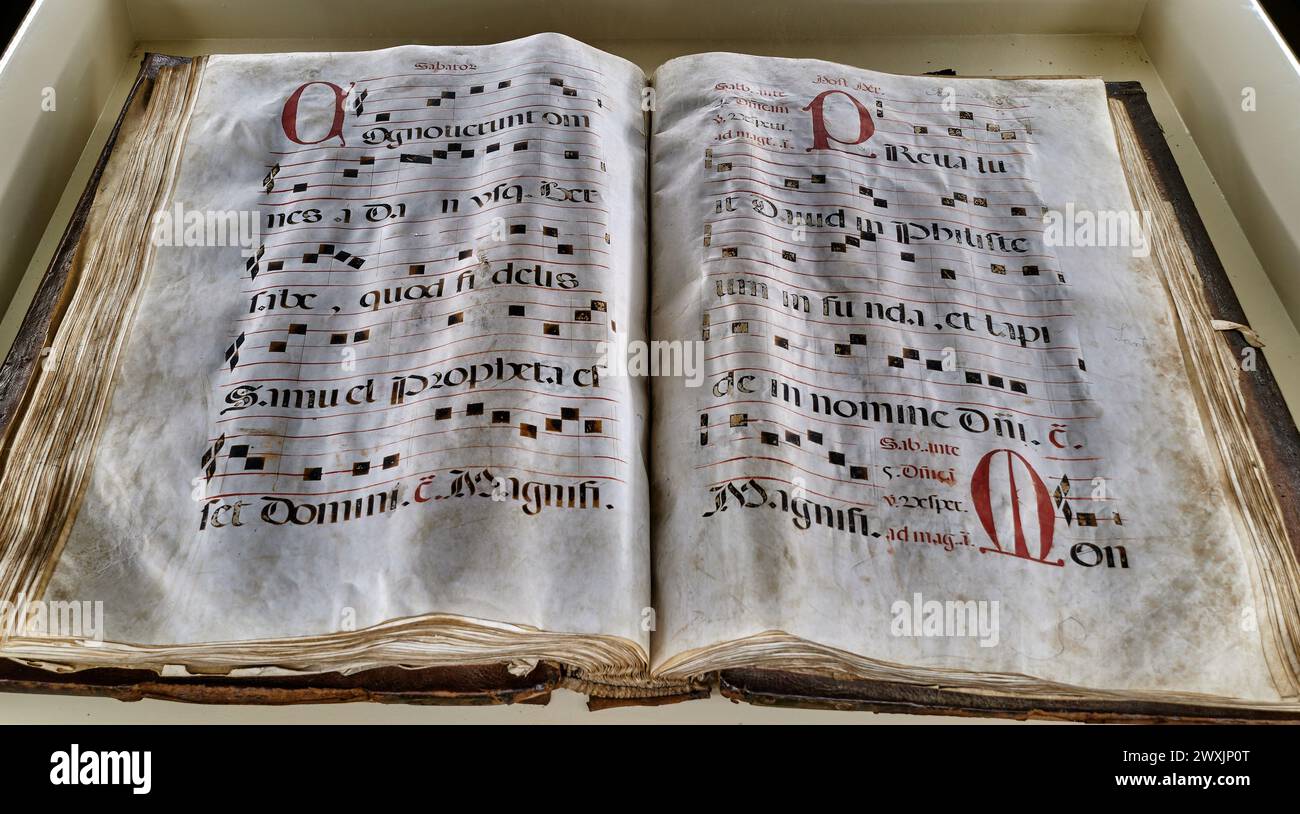 Sabator
C
Ognouerunt om
nes a Da n vsq. Ber
sabe, quod fidelis
Samuel Propheta es
set Domini. c̄. Magnifi.
Post
Sabb. ante
v. Vesper.
ad mag. ā.
P
Reualu
it Dauid in Philiste
um in funda, et lapi
de in nomine Dn̄i. c̄.
Magnifi.
Sab. ante
5. Dn̄icā
v. Vesper.
ad mag. ā.
M
on
alamy
Image ID: 2WXJP0T
www.alamy.com